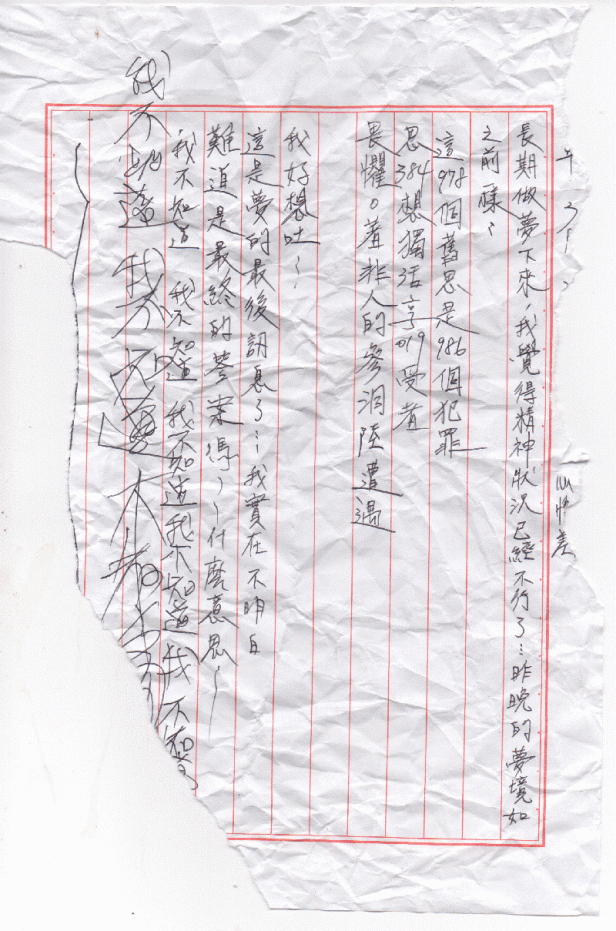 心情差
長期做夢下來，我覺得精神狀況已經不行了…昨晚的夢境如
之前一樣～
這978個舊思是986個犯罪
思384想獨活享019受者
畏懼。羞非人的參洞陸遭遇
我好想吐～
這是夢的最後訊息了…我實在不明白
難道是最終的答案嗎，～什麼意思～
我不知道 我不知道 我不知道我不知道我不知
我不知道 我不知道 不知道